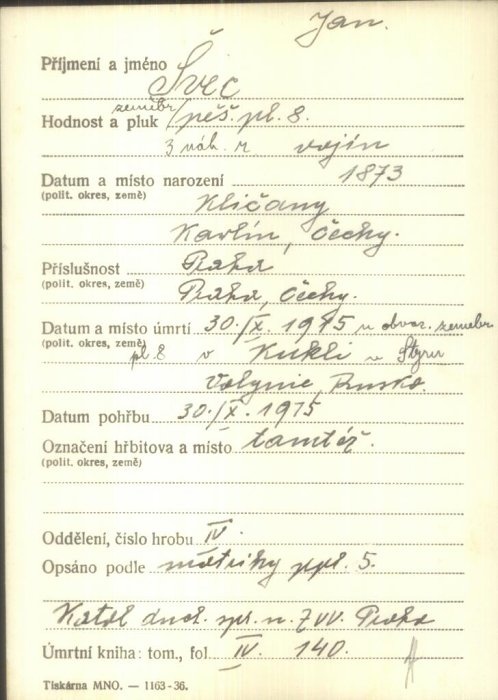 Jan.
Příjmení a jméno Švec
zeměbr
Hodnost a pluk / pěš. pl. 8.
3 náh. r. vojín
Datum a místo narození 1873
(polit. okres, země) Kličany
Karlín, Čechy.
Příslušnost Praha
(polit. okres, země) Praha, Čechy.
Datum a místo úmrtí 30./IX. 1915 u obvaz. zeměbr.
(polit. okres, země) pl. 8 v Kukli u Styru
Volynie, Rusko.
Datum pohřbu 30./IX. 1915
Označení hřbitova a místo tamtéž.
(polit. okres, země)
Oddělení, číslo hrobu IV.
Opsáno podle matriky ppl. 5.
Katol. duch. spr. n. ZVV. Praha
Úmrtní kniha: tom., fol. IV. 140.
Tiskárna MNO. — 1163-36.